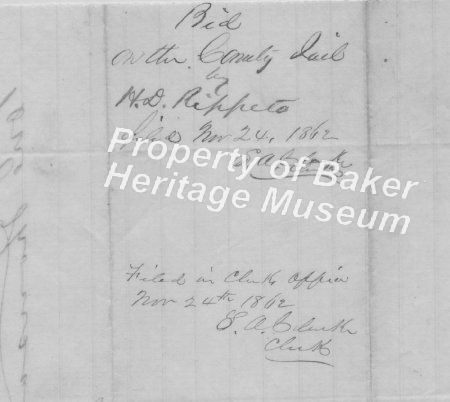 Bid
on the County Jail
by
H. D. Rippeto
Filed Nov 24, 1862
E. A. Clark
Property of Baker
Heritage Museum
Filed in Clerks office
Nov 24th 1862
E. A. Clark
Clerk